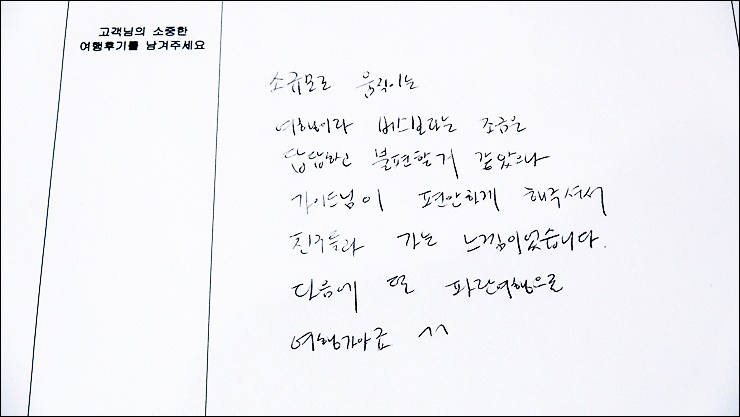 고객님의 소중한
여행후기를 남겨주세요
소규모로 움직이는
여행이라 버스보다는 조금은
답답하고 불편할거 같았으나
가이드님이 편안하게 해주셔서
친구들과 가는 느낌이었습니다.
다음에 또 파란여행으로
여행가야죠 ^^